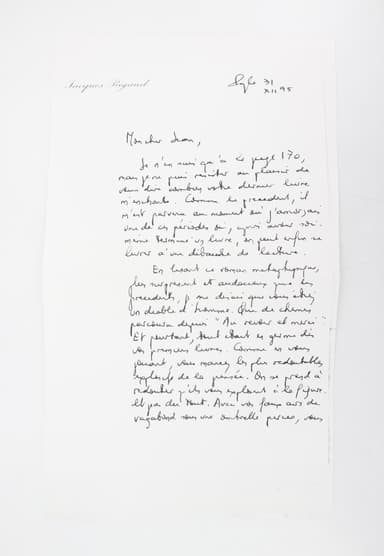 Jacques Rigaud
31
XII 95
Mon cher Jean,
Je n'en suis qu'à la page 170,
mais je ne puis résister au plaisir de
vous dire combien votre dernier livre
m'enchante. Comme le précédent, il
m'est parvenu au moment où j'amorçais
une de ces périodes où, après avoir soi-
même terminé un livre, on peut enfin se
livrer à une débauche de lecture.
En lisant ce roman métaphysique,
plus surprenant et audacieux que les
précédents, je me disais que vous étiez
un diable d'homme. Que de chemin
parcouru depuis "Au revoir et merci"!
Et pourtant, tout était en germe dès
vos premiers livres. Comme en vous
jouant, vous maniez les plus redoutables
explosifs de la pensée. On se prend à
redouter qu'ils vous explosent à la figure.
Et pas du tout. Avec vos faux airs de
vagabond sous une ombrelle percée, vous